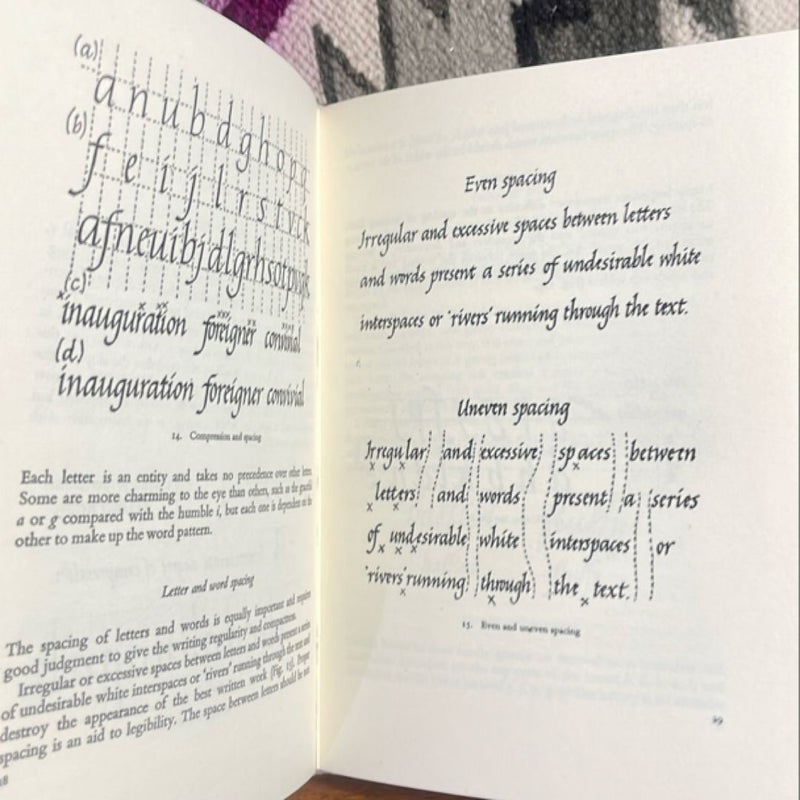 (a)
a n u b d g h o p q
(b)
f e i j l r s t v c k
afneuibjdlgrhsotpvqck
(c)
inauguration foreigner convivial
(d)
inauguration foreigner convivial
14. Compression and spacing
Each letter is an entity and takes no precedence over other letters.
Some are more charming to the eye than others, such as the graceful
a or g compared with the humble i, but each one is dependent on the
other to make up the word pattern.
Letter and word spacing
The spacing of letters and words is equally important and requires
good judgment to give the writing regularity and compactness.
Irregular or excessive spaces between letters and words present a series
of undesirable white interspaces or 'rivers' running through the text and
destroy the appearance of the best written work (Fig. 15). Proper
spacing is an aid to legibility. The space between letters should be not
Even spacing
Irregular and excessive spaces between letters
and words present a series of undesirable white
interspaces or 'rivers' running through the text.
Uneven spacing
Irregular and excessive spaces between
letters and words present a series
of undesirable white interspaces or
'rivers' running through the text.
15. Even and uneven spacing